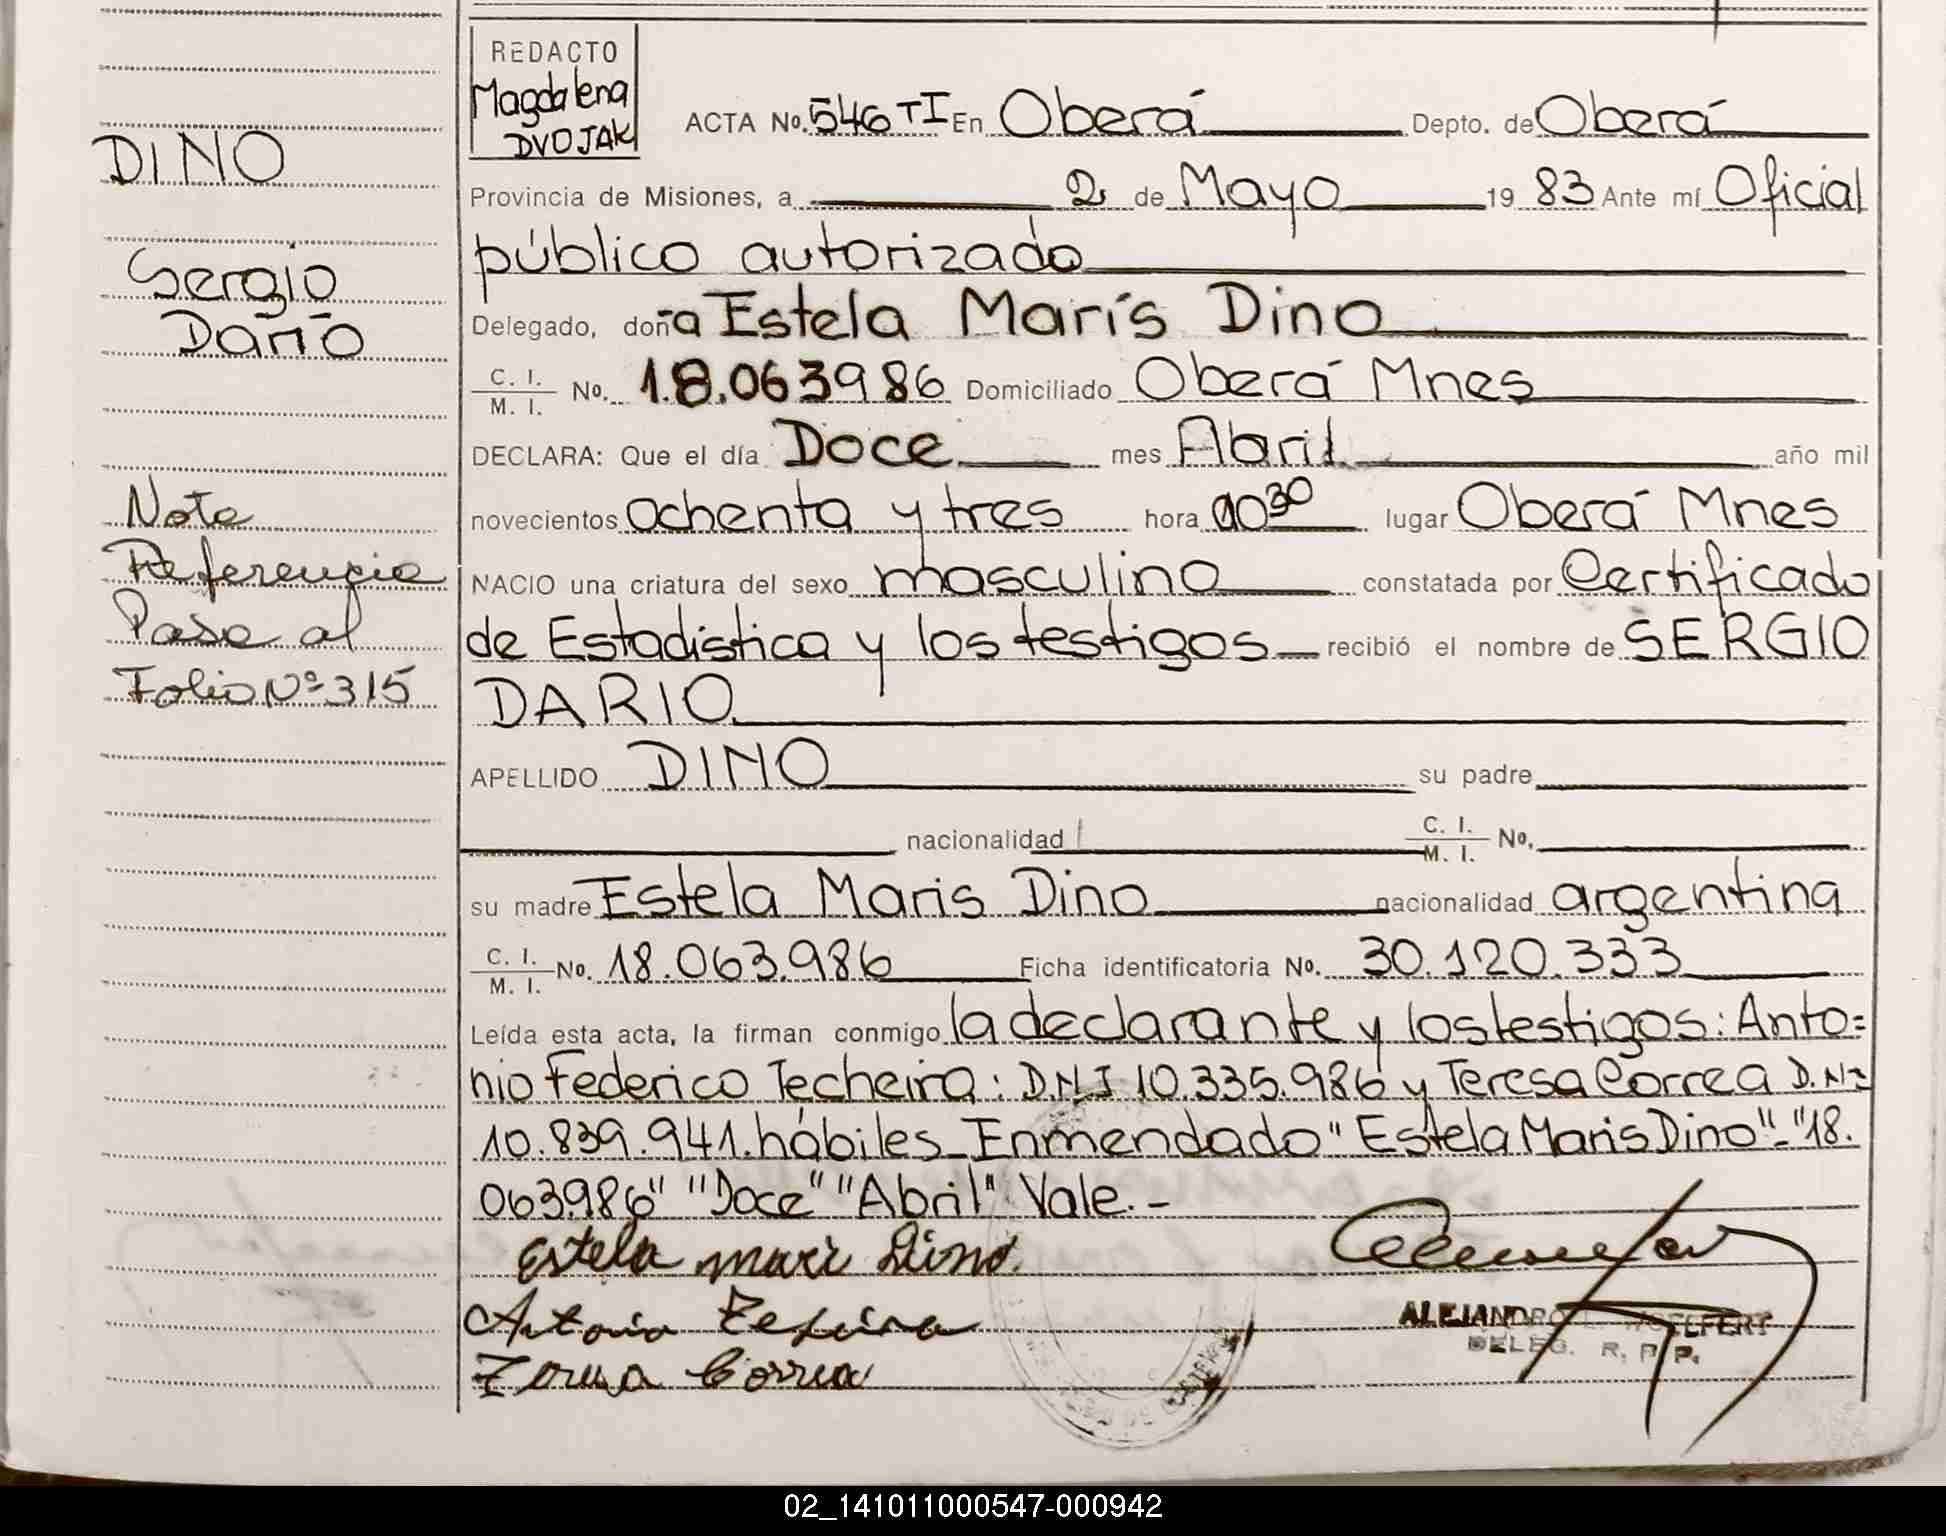 DINO
Sergio
Darío
Nota
Referencia
Pasa al
Folio Nº 315
REDACTO
Magdalena
DVOJAK
ACTA No. 546 TI En Oberá Depto. de Oberá
Provincia de Misiones, a 2 de Mayo 19 83 Ante mí Oficial
público autorizado
Delegado, doña Estela Marís Dino
C. I. / M. I. No. 18.063986 Domiciliado Oberá Mnes
DECLARA: Que el día Doce mes Abril año mil
novecientos ochenta y tres hora 10 30 lugar Oberá Mnes
NACIO una criatura del sexo masculino constatada por Certificado
de Estadística y los testigos recibió el nombre de SERGIO
DARIO
APELLIDO DINO su padre
nacionalidad C. I. / M. I. No.
su madre Estela Maris Dino nacionalidad argentina
C. I. / M. I. No. 18.063.986 Ficha identificatoria No. 30.120.333
Leída esta acta, la firman conmigo la declarante y los testigos: Anto=
nio Federico Techeira: D.N.I 10.335.986 y Teresa Correa D.N=
10.839.941. hábiles_ Enmendado "Estela Maris Dino"-"18.
063.986" "Doce" "Abril" Vale.-
Estela mari Dino.
Antonio
Correa
ALEJANDRO
DELEG. R. P. P.
02_141011000547-000942